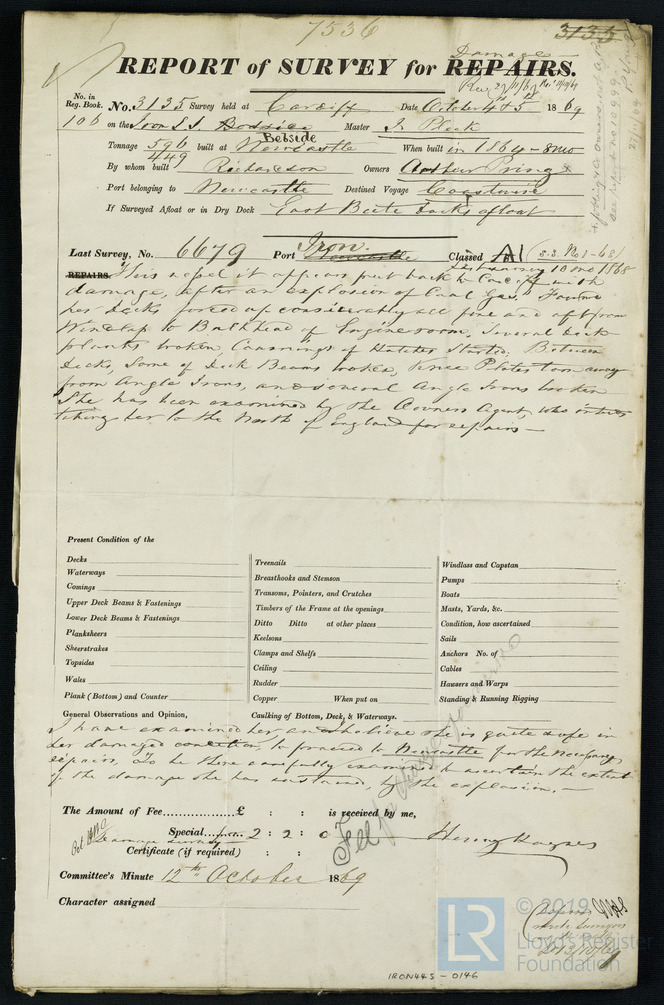 7536
3135
Damage
REPORT of SURVEY for REPAIRS.
No. in Reg. Book.
No. 3135 Survey held at Cardiff Date October 4th & 5th 1869
106 on the Iron S.S. Bedside Master J. Pleck
Bebside
Tonnage 596 built at Newcastle When built in 1864-8mo
449
By whom built Richardson Owners Arthur Pring
Port belonging to Newcastle Destined Voyage Coastwise
If Surveyed Afloat or in Dry Dock East Bute docks afloat
Iron.
Last Survey, No. 6679 Port Newcastle Classed A1 (S.S. No 1-68)
10 mo 1868
REPAIRS. This vessel it appears put back to Cardiff with
damage, after an explosion of Coal Gas. Found
her decks forced up considerably all fore and aft from
Windlass to Bulkhead of Engine room, Several deck
planks broken Coamings of Hatches Started. Between
decks, Some of Deck Beams broken, Knee Plates torn away
from Angle Irons, and several Angle Irons broken
She has been examined by the Owners Agent, who intends
taking her to the North of England for repairs —
Present Condition of the
Decks
Waterways
Comings
Upper Deck Beams & Fastenings
Lower Deck Beams & Fastenings
Planksheers
Sheerstrakes
Topsides
Wales
Plank (Bottom) and Counter
Treenails
Breasthooks and Stemson
Transoms, Pointers, and Crutches
Timbers of the Frame at the openings
Ditto Ditto at other places
Keelsons
Clamps and Shelfs
Ceiling
Rudder
Copper When put on
Caulking of Bottom, Deck, & Waterways.
Windlass and Capstan
Pumps
Boats
Masts, Yards, &c.
Condition, how ascertained
Sails
Anchors No. of
Cables
Hawsers and Warps
Standing & Running Rigging
General Observations and Opinion,
I have examined her and believe she is quite safe in
her damaged condition, to proceed to Newcastle for the necessary
repairs, to be there carefully examined to ascertain the extent
of the damage she has sustained, by the explosion. —
The Amount of Fee £ : : is received by me,
Special 2 : 2 : 0
Damage Survey
Certificate (if required) : :
Henry Haynes
Committee's Minute 12th October 1869
Character assigned
LR
© 2019
Lloyd's Register
Foundation
IRON445-0146